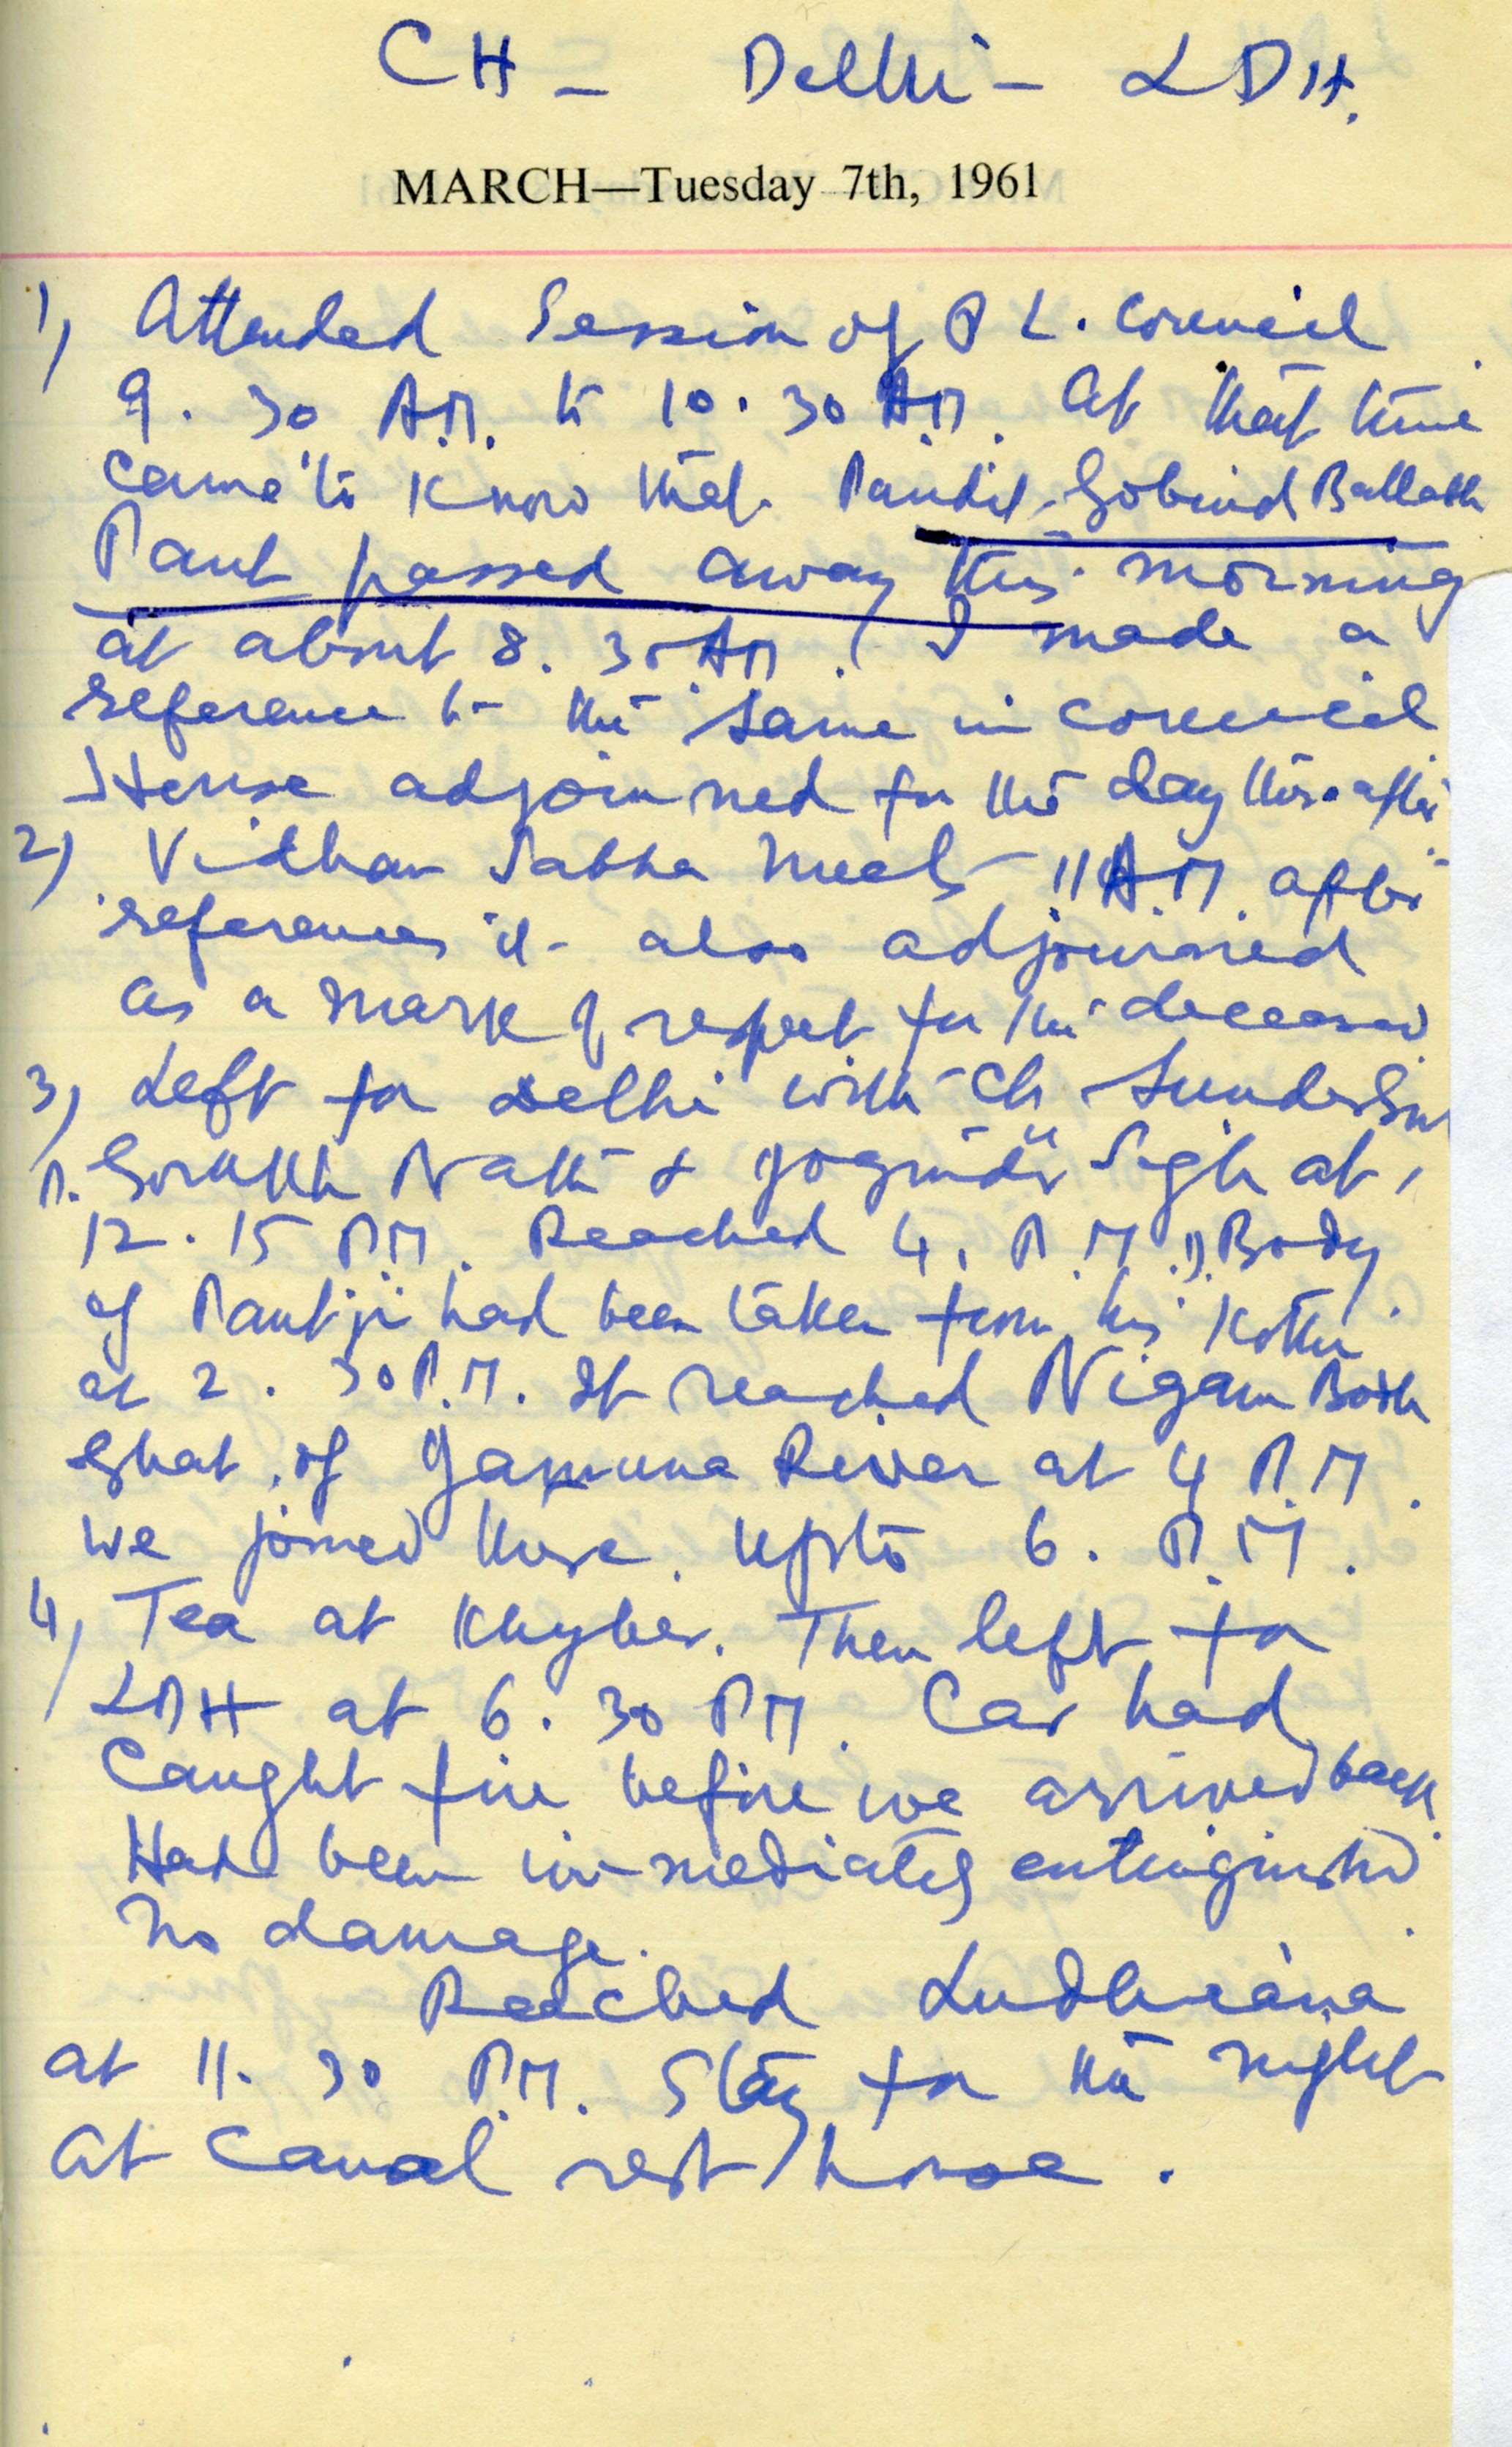 CH - Delhi - LDH.
MARCH—Tuesday 7th, 1961
1) Attended Session of P L. Council
9. 30 A.M. to 10. 30 A.M. At that time
came to know that Pandit Gobind Ballabh
Pant passed away this morning
at about 8. 30 AM. I made a
reference to the same in council
House adjourned for the day thereafter
2) Vidhan Sabha meets 11 A.M. after
references it also adjourned
as a mark of respect for the deceased
3) Left for Delhi with Ch Sunder
P. Gorakh Nath & Joginder Sigh at
12. 15 P.M. Reached 4. P.M. Body
of Pantji had been taken from his Kothi
at 2. 30 P.M. It reached Nigam Bodh
Ghat of Jamuna River at 4 P.M.
we joined there. Upto 6. P.M.
4) Tea at Khyber. Then left for
LDH at 6. 30 PM. Car had
Caught fire before we arrived back.
Had been immediately extinguished
No damage.
Reached Ludhiana
at 11. 30 P.M. Stay for the night
at Canal rest house.